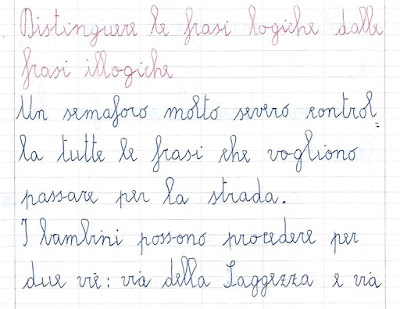 Distinguere le frasi logiche dalle
frasi illogiche
Un semaforo molto severo control=
la tutte le frasi che vogliono
passare per la strada.
I bambini possono procedere per
due vie: via della Saggezza e via